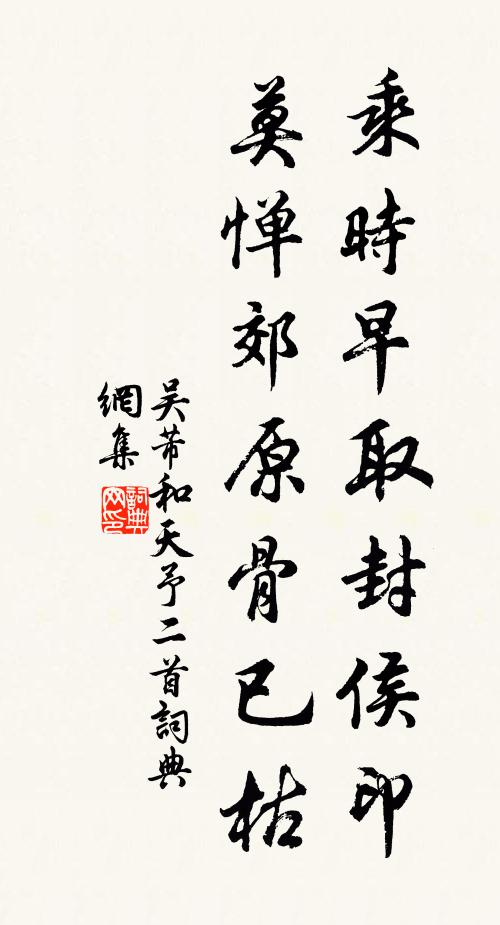 乘時早取封侯印
莫惮郊原骨已枯
吴芾和天予二首詞典
網集
詞典
网印